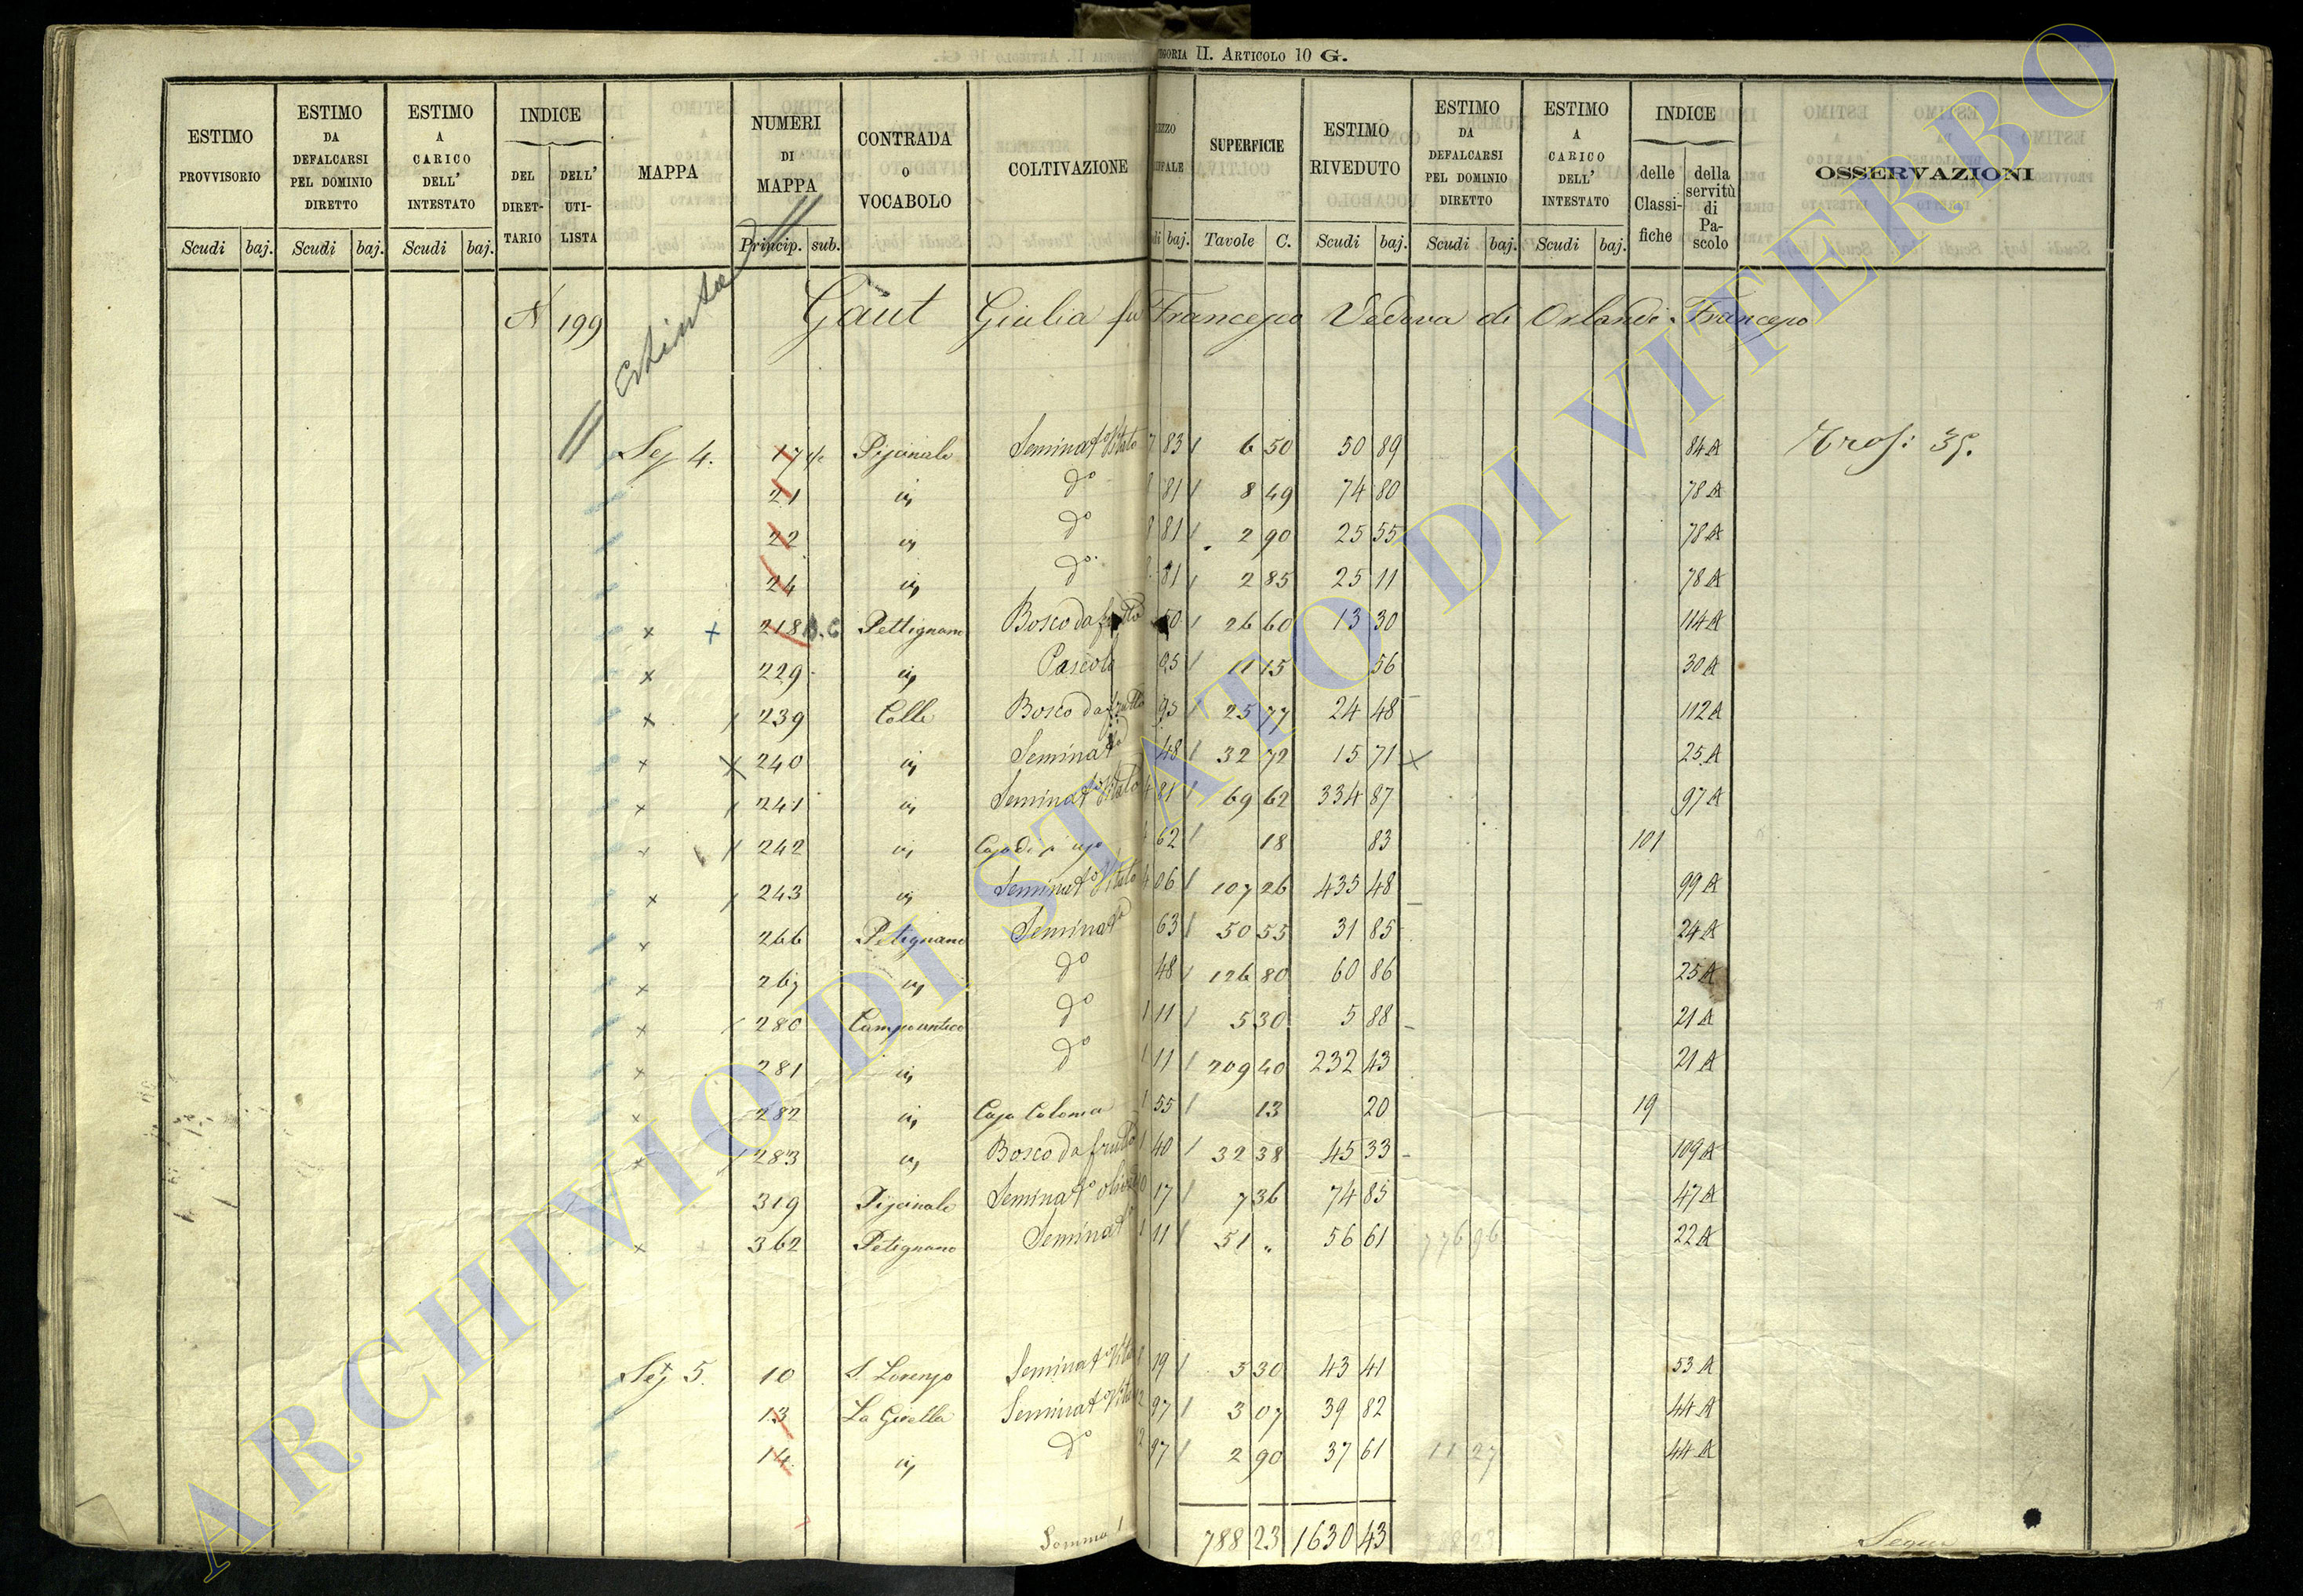 Categoria II. Articolo 10 G.
ESTIMO PROVVISORIO
ESTIMO DA DEFALCARSI PEL DOMINIO DIRETTO
ESTIMO A CARICO DELL' INTESTATO
INDICE
DEL DIRETTARIO
DELL' UTILISTA
MAPPA
NUMERI DI MAPPA
CONTRADA O VOCABOLO
COLTIVAZIONE
SUPERFICIE
ESTIMO RIVEDUTO
ESTIMO DA DEFALCARSI PEL DOMINIO DIRETTO
ESTIMO A CARICO DELL' INTESTATO
INDICE
delle Classifiche
della servitù di Pascolo
OSSERVAZIONI
Scudi baj. Scudi baj. Scudi baj. Princip. sub. baj. Tavole C. Scudi baj. Scudi baj. Scudi baj.
N 199 Gaut Giulia fu Francesco Vedova di Orlandi Francesco
Estinta
Sez 4. 17 Seminat° Vitato 83 6 50 50 89 84 A
21 d° 81 8 49 74 80 78 A
22 d° 81 2 90 25 55 78 A
24 d° 81 2 85 25 11 78 A
x + 218 Pettignano Bosco da frutto 50 26 60 13 30 114 A
x 229 Pascolo 05 11 15 56 30 A
x 239 Colle Bosco da frutto 95 25 77 24 48 112 A
x x 240 Seminat° 48 32 72 15 71 x 25 A
x 241 Seminat° Vitato 4 81 69 62 334 87 97 A
x 242 62 18 83 101
x 243 Seminat° Vitato 4 06 107 26 435 48 99 A
x 266 Petignano Seminat° 63 50 55 31 85 24 A
x 267 d° 48 126 80 60 86 25 A
x 280 Campo antico d° 1 11 5 30 5 88 21 A
x 281 d° 1 11 209 40 232 43 21 A
x 282 Casa Colonica 1 55 13 20 19
x 283 Bosco da frutto 1 40 32 38 45 33 109 A
319 Seminat° olivato 17 7 36 74 85 47 A
x 362 Petignano Seminat° 1 11 51 " 56 61 776 96 22 A
Sez 5. 10 S. Lorenzo Seminat° Vitato 8 19 5 30 43 41 53 A
13 Seminat° Vitato 12 97 3 07 39 82 44 A
14 d° 12 97 2 90 37 61 11 27 44 A
Somma 788 23 1630 43
Segue
ARCHIVIO DI STATO DI VITERBO